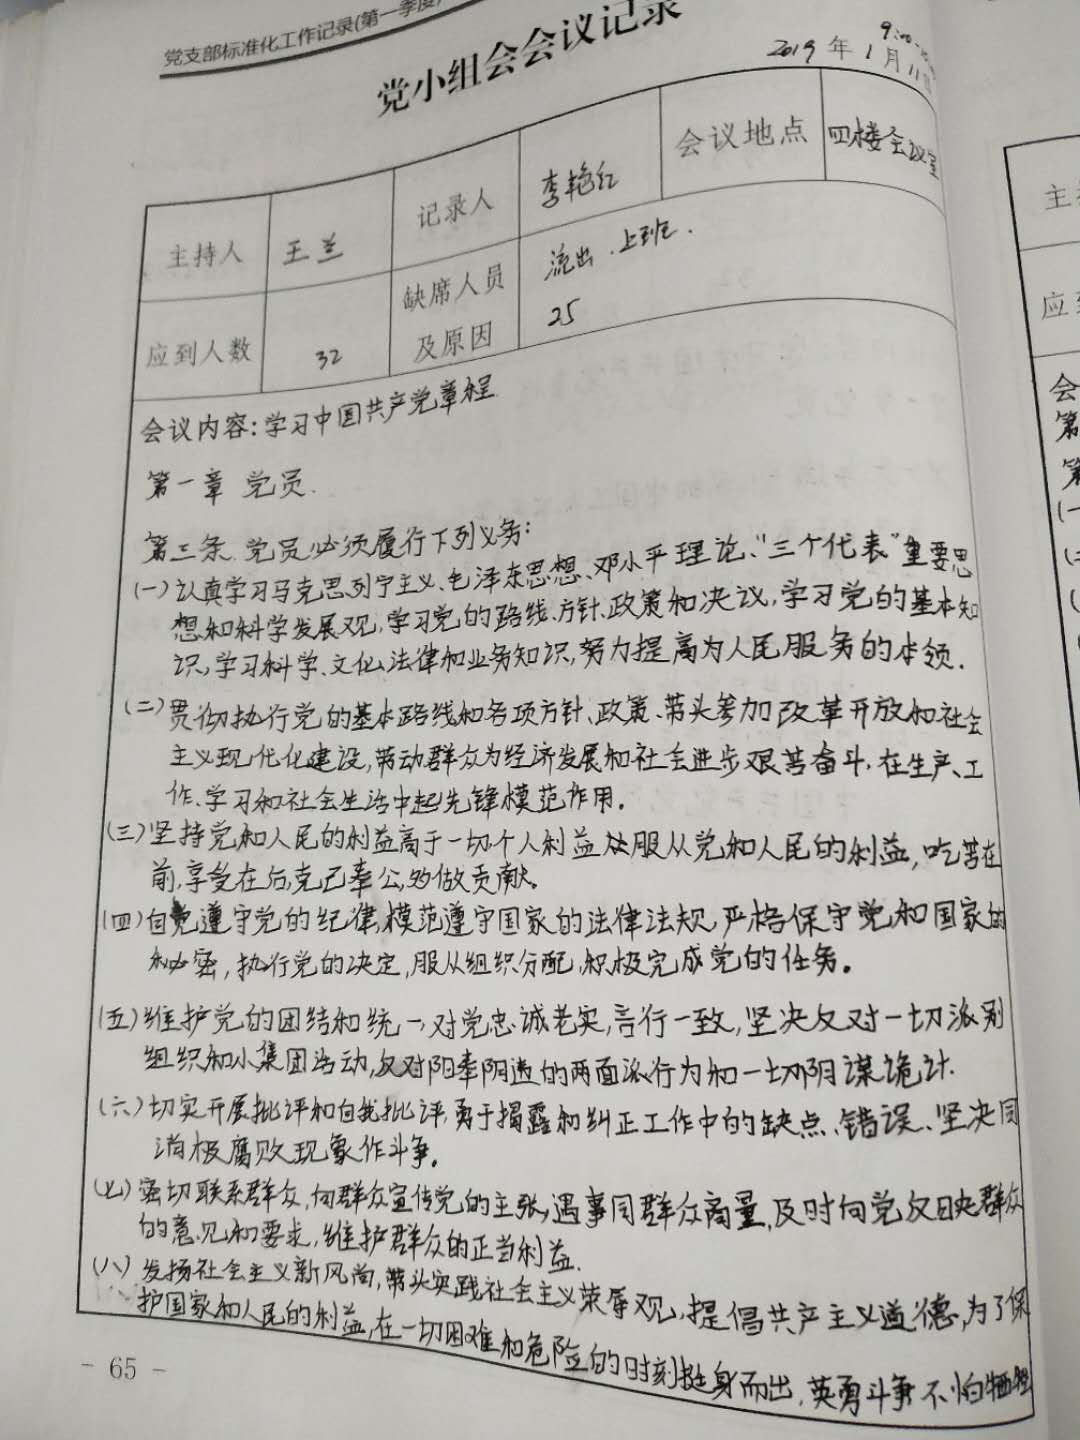 党支部标准化工作记录(第一季度)
党小组会会议记录
9:00
2019年1月11日
主持人 王兰 记录人 李艳红 会议地点 四楼会议室
应到人数 32 缺席人员及原因 流出.上班.
25
会议内容:学习中国共产党章程
第一章 党员.
第三条.党员必须履行下列义务:
(一)认真学习马克思列宁主义、毛泽东思想、邓小平理论、“三个代表”重要思
想和科学发展观,学习党的路线、方针、政策和决议,学习党的基本知
识,学习科学、文化、法律和业务知识,努力提高为人民服务的本领.
(二)贯彻执行党的基本路线和各项方针、政策、带头参加改革开放和社会
主义现代化建设,带动群众为经济发展和社会进步艰苦奋斗,在生产、工
作、学习和社会生活中起先锋模范作用。
(三)坚持党和人民的利益高于一切个人利益从服从党和人民的利益,吃苦在
前,享受在后,克己奉公,多做贡献。
(四)自觉遵守党的纪律,模范遵守国家的法律法规,严格保守党和国家的
秘密,执行党的决定,服从组织分配,积极完成党的任务。
(五)维护党的团结和统一,对党忠诚老实,言行一致,坚决反对一切派别
组织和小集团活动,反对阳奉阴违的两面派行为和一切阴谋诡计.
(六)切实开展批评和自我批评,勇于揭露和纠正工作中的缺点、错误、坚决同
消极腐败现象作斗争。
(七)密切联系群众,向群众宣传党的主张,遇事同群众商量,及时向党反映群众
的意见和要求,维护群众的正当利益.
(八)发扬社会主义新风尚,带头实践社会主义荣辱观,提倡共产主义道德,为了保
护国家和人民的利益,在一切困难和危险的时刻挺身而出,英勇斗争不怕牺牲
- 65 -
主
应
会
第
第
(一